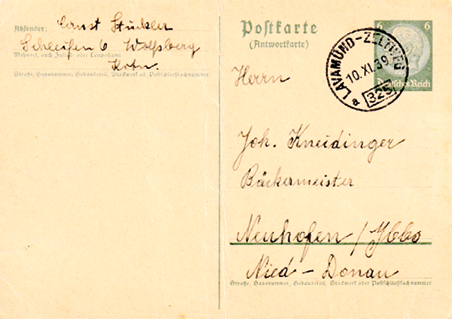 Absender: Ernst Stückler
Schleifen 6 Wolfsberg
Wohnort, auch Zustell- oder Leitpostamt
Kdtn.
Straße, Hausnummer, Gebäudeteil, Stockwerk od. Postschließfachnummer
Postkarte
(Antwortkarte)
6 6
Deutsches Reich
LAVAMÜND-ZELTWEG
10.XI.39
a 325
Herrn
Joh. Kneidinger
Bäckermeister
Neuhofen / Ybbs
Nied - Donau
Straße, Hausnummer, Gebäudeteil, Stockwerk oder Postschließfachnummer